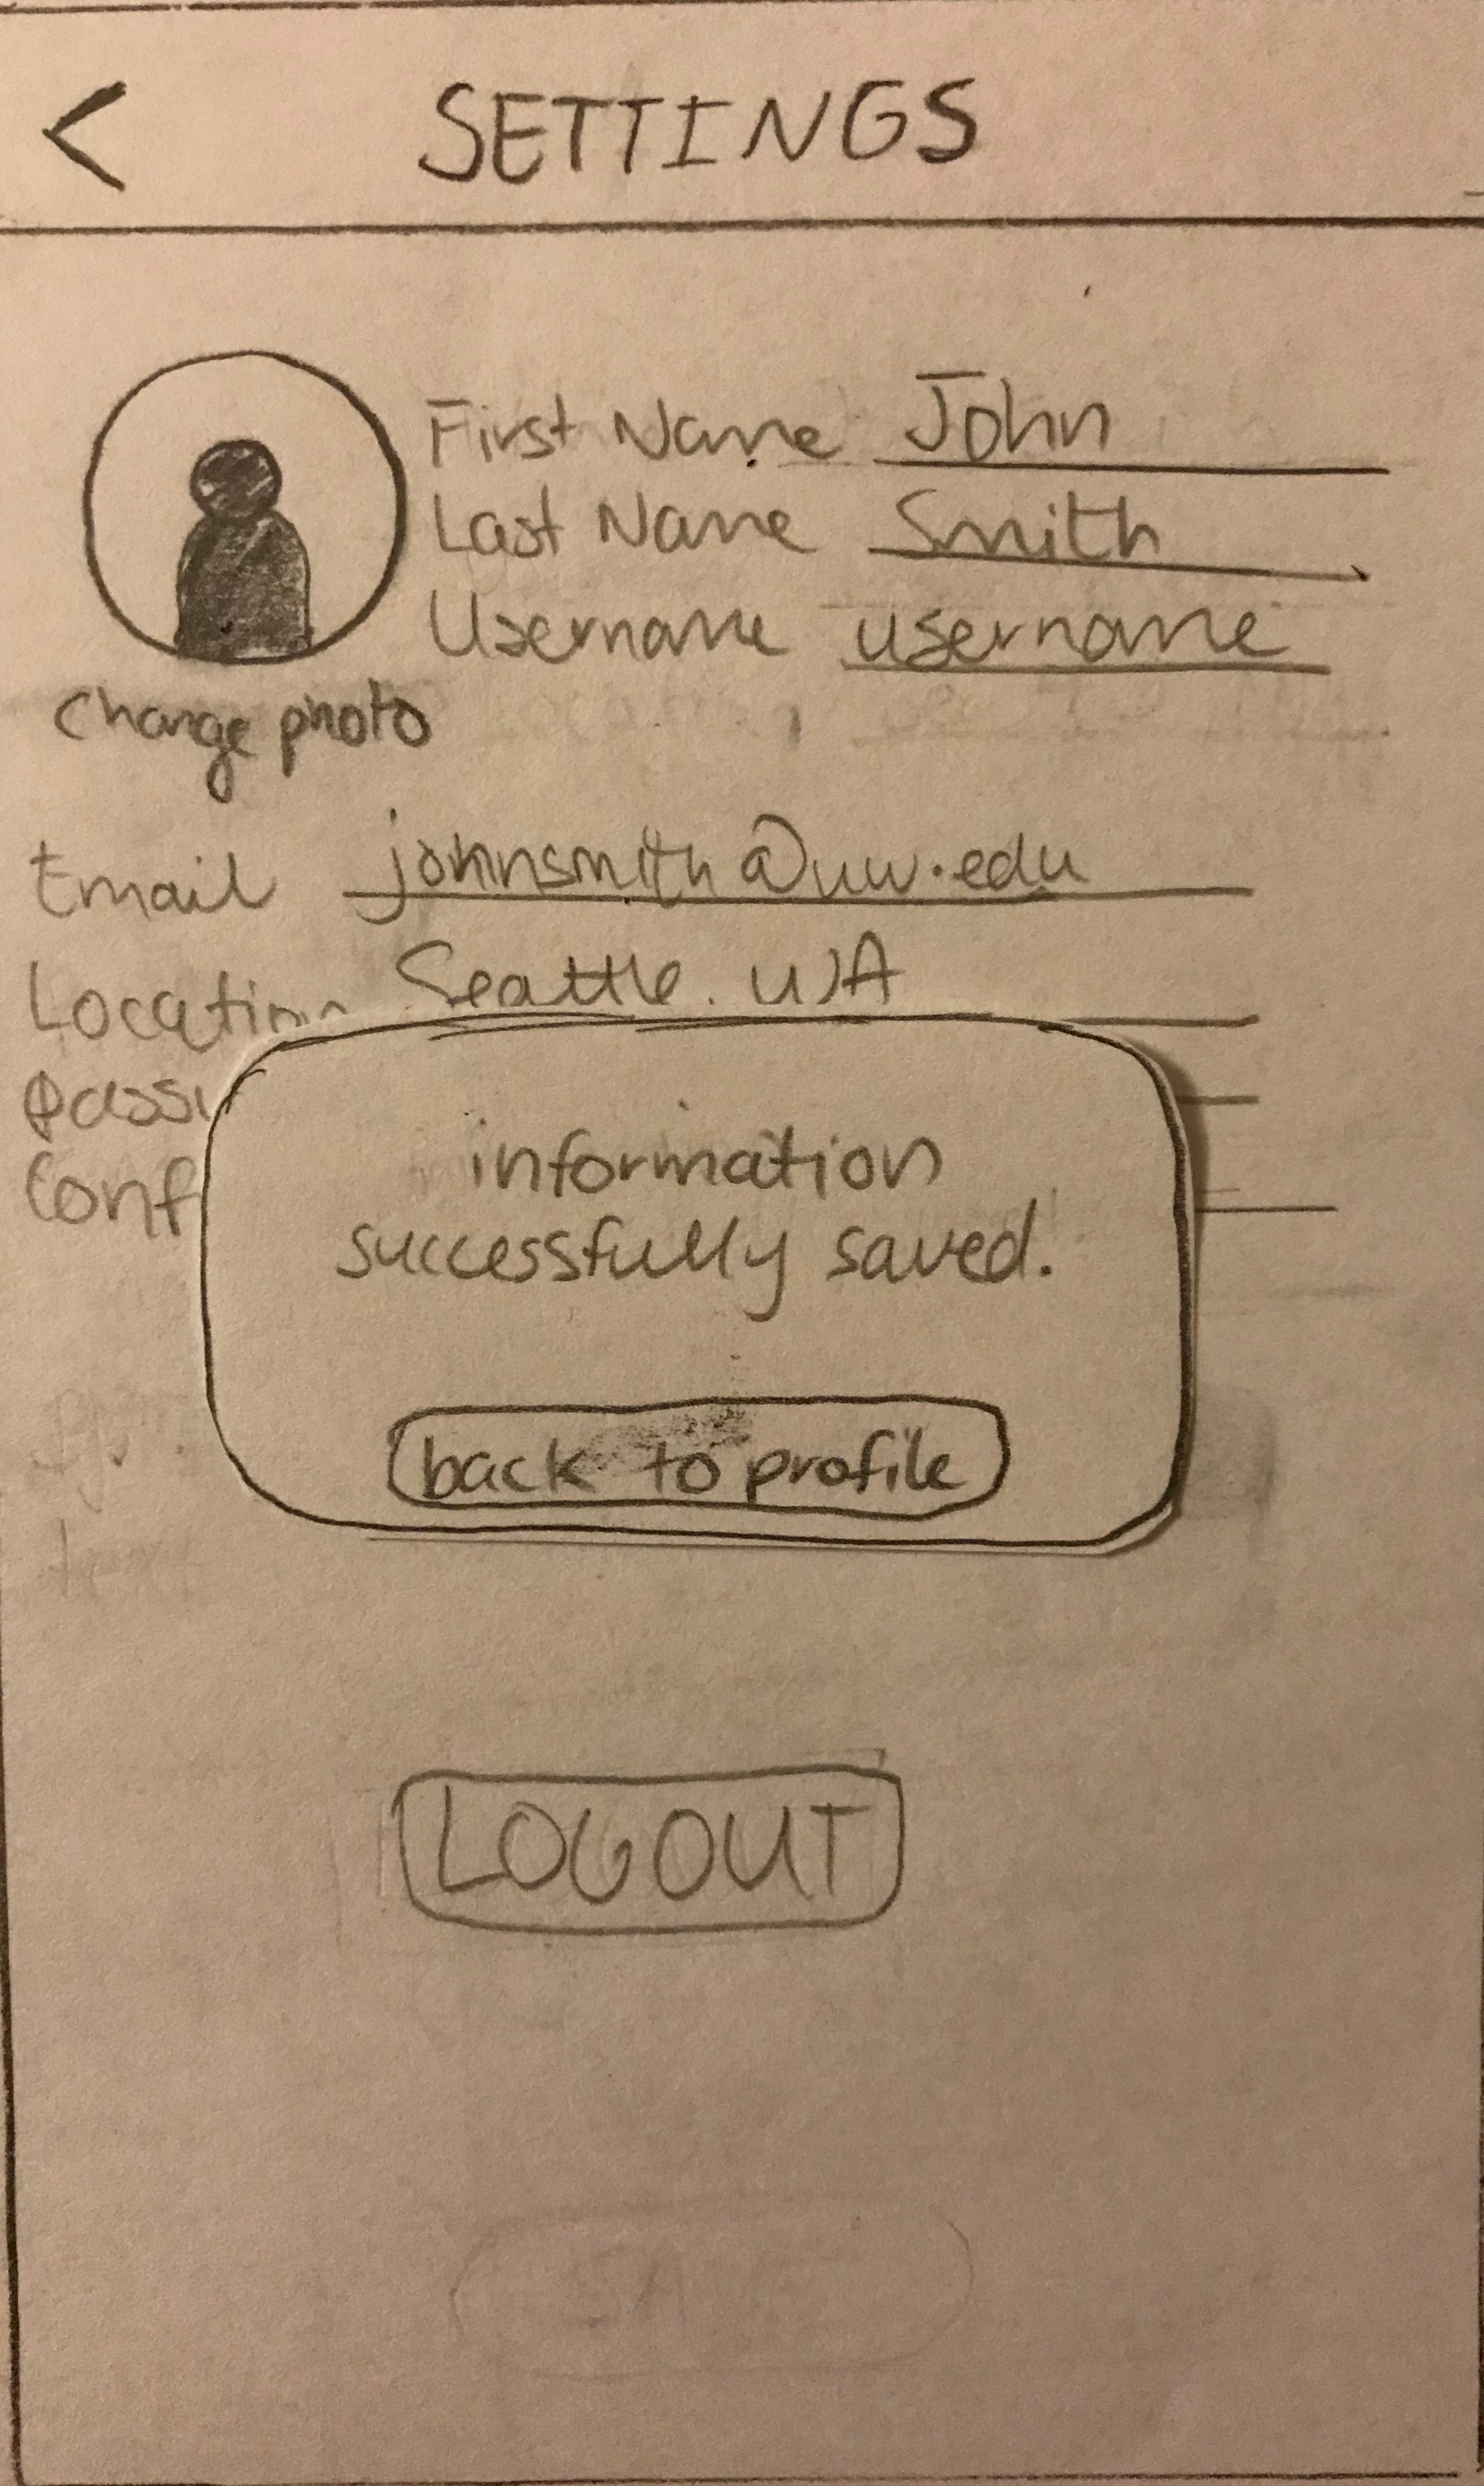 <
SETTINGS
First Name John
Last Name Smith
Username username
change photo
Email johnsmith@uw.edu
Location Seattle. WA
passw
Conf
information
successfully saved.
back to profile
LOGOUT